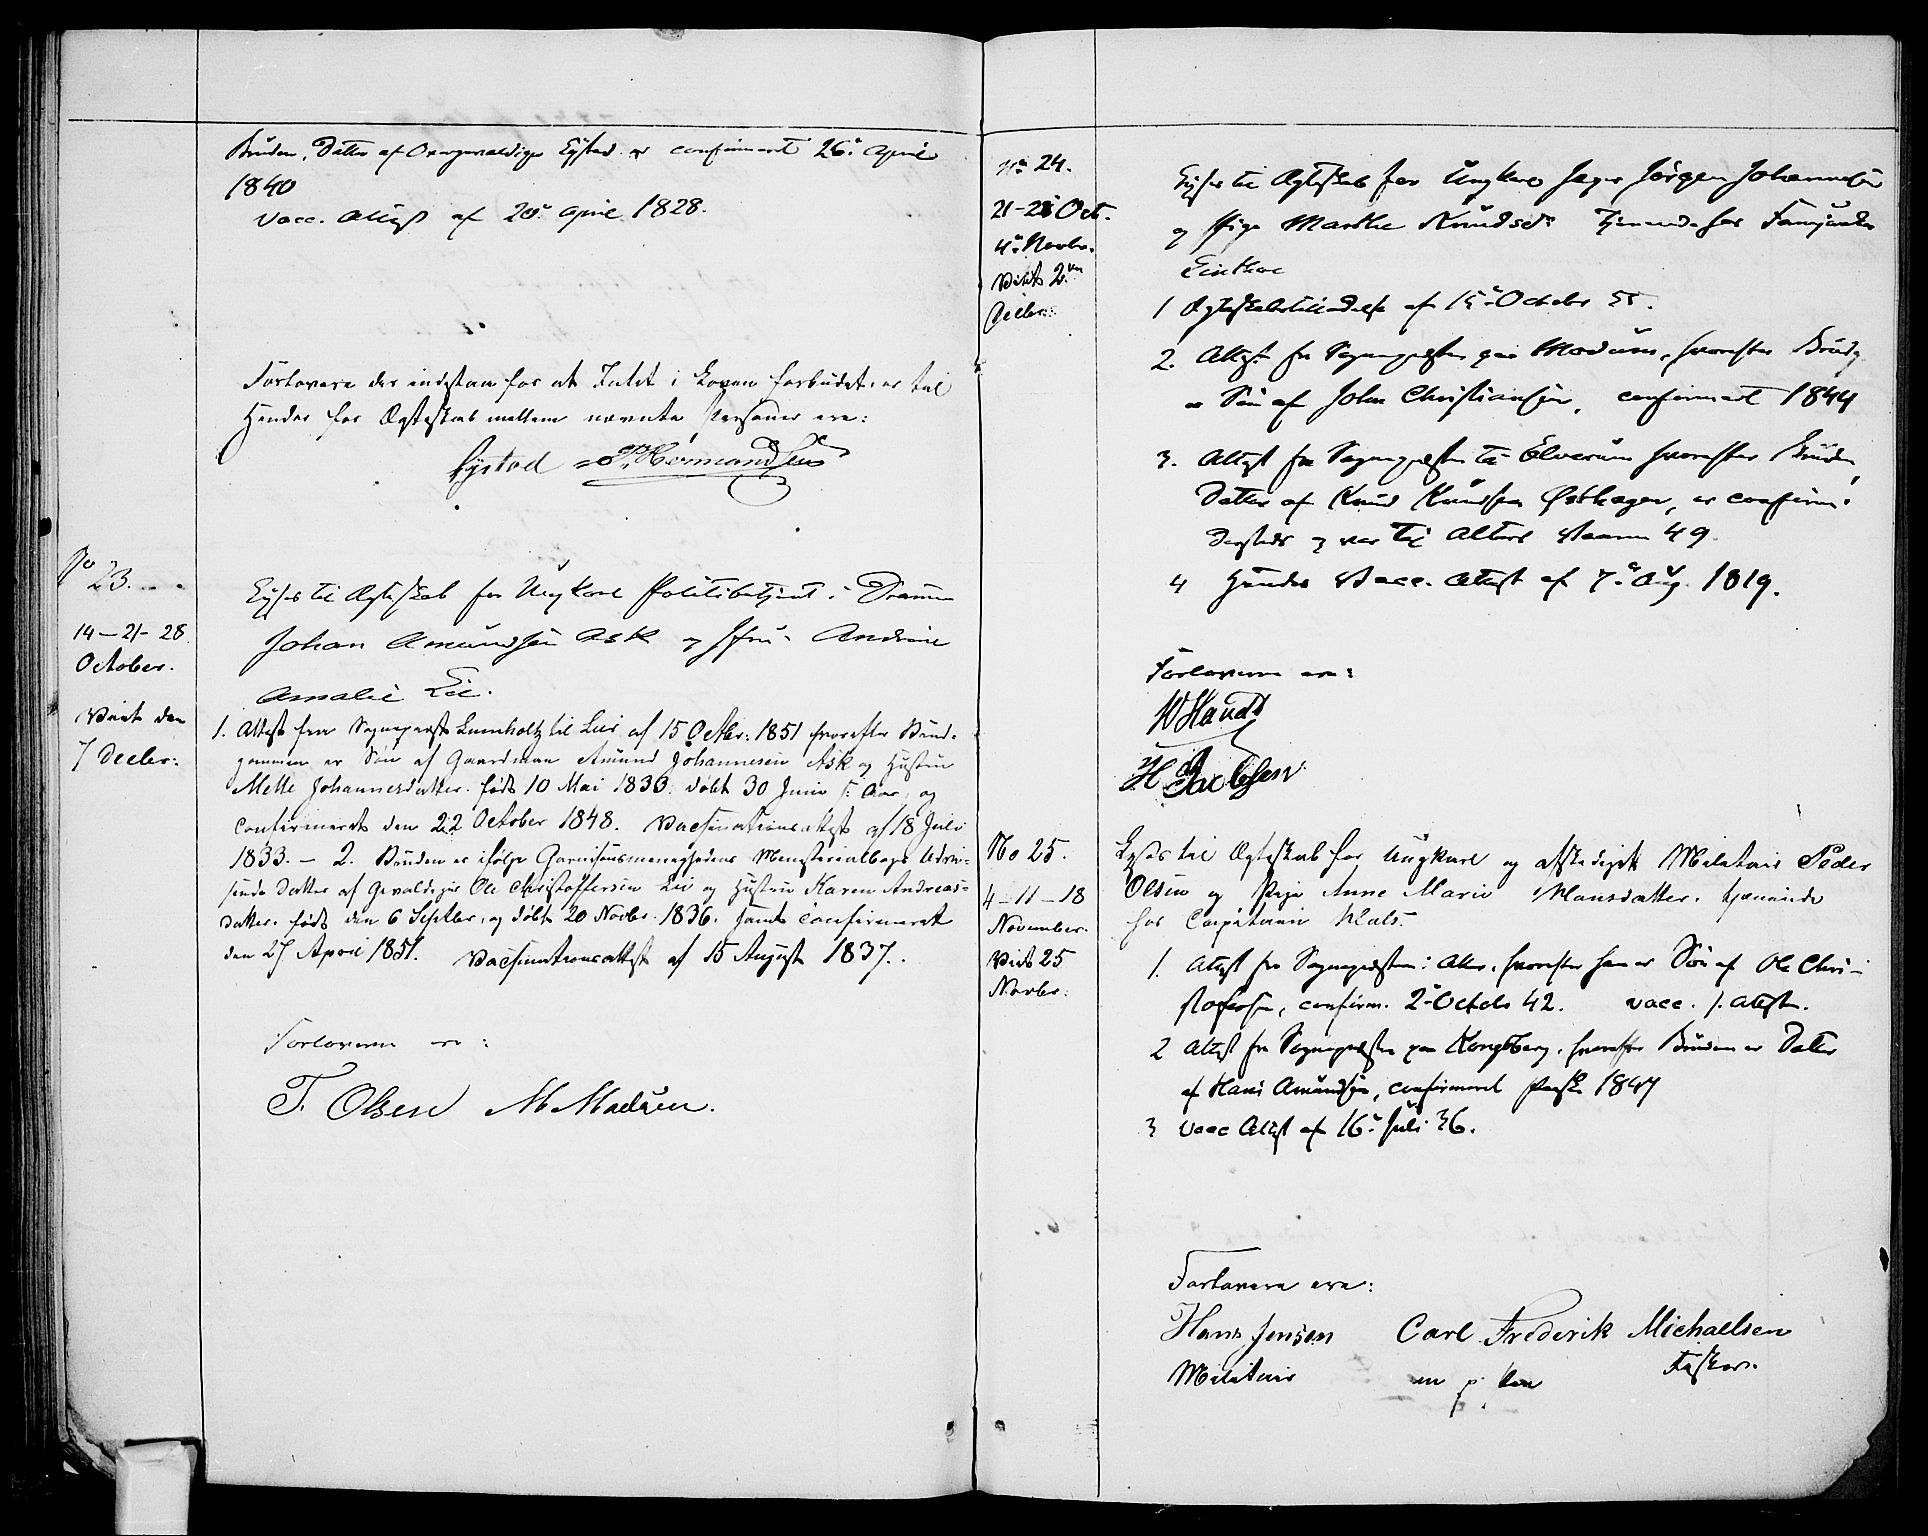 Bruden, Datter af Overgevaldiger Eystad er confirmeret 26de April
1840
Vacc. Attest af 20de April 1828.
Forlovere der indestaa for at Intet i Loven forbudet er til
Hinder for Ægteskab mellem nævnte Personer ere:
Eystad P. Hermandsen
No 23.
14-21-28
October.
Viet den
7 Decbr:
Lyses til Ægteskab for Ungkarl Politibetjent i Drammen
Johan Amundsen Ask og Jfru. Andrine
Amalie Lie.
1. Attest fra Sognepræst Lumholtz til Lier af 15 Octbr: 1851 hvorefter Brud-
gommen er Søn af Gaardman Amund Johannesen Ask og Hustru
Mette Johannesdatter. født 10 Mai 1833. døbt 30 Juni s: Aar, og
Confirmeret den 22 October 1848. Vacsinationsattest af 18 Juli
1833. - 2. Bruden er ifølge Garnisonsmenighedens Ministerialbogs Udvi-
sende Datter af Gevaldiger Ole Christoffersen Lie og Hustru Karen Andreas-
datter. født den 6 Septbr. og døbt 20 Novbr. 1836. samt confirmeret
den 27 April 1851. Vacsinationsattest af 15 August 1837.
Forloverne ere:
T. Olsen M Madsen.
No 24.
21-28 Oct.
4de Novbr.
Viet 2den
Decbr:
Lyses til Ægteskab for Ungkarl Jæger Jørgen Johannesen
og Pige Marthe Knudsdr tjenende hos
1 Ægteskabstilladelse af 15de October 55.
2. Attest fra Sognepræsten paa Modum, hvorefter Brudg
er Søn af John Christiansen, confirmeret 1844
3. Attest fra Sognepræsten til Elverum hvorefter Bruden,
Datter af Knud Knudsen Østhagen, er confirm.
dersteds og var til Alters 49.
4 Hendes Vacc. Attest af 7de Aug. 1819.
Forloverne ere:
H Jacobsen
No 25.
4-11-18
November.
Viet 25
Novbr:
Lyses til Ægteskab for Ungkarl og afskediget Militair Peder
Olsen og Pige Anne Marie Hansdatter. tjenende
hos Capitain
1. Attest fra Sognepræsten i Aker, hvorefter han er Søn af Ole Chri-
stofersen, confirm. 2de Octobr 42. vacc. s. Attest.
2 Attest fra Sognepræsten paa Kongsberg, hvorefter Bruden er Datter
af Hans Amundsen, confirmeret Paaske 1847
3 Vacc Attest af 16de Juli 36.
Forlovere ere:
Hans Jensen Carl Frederik Michaelsen
Militair m p. Pen